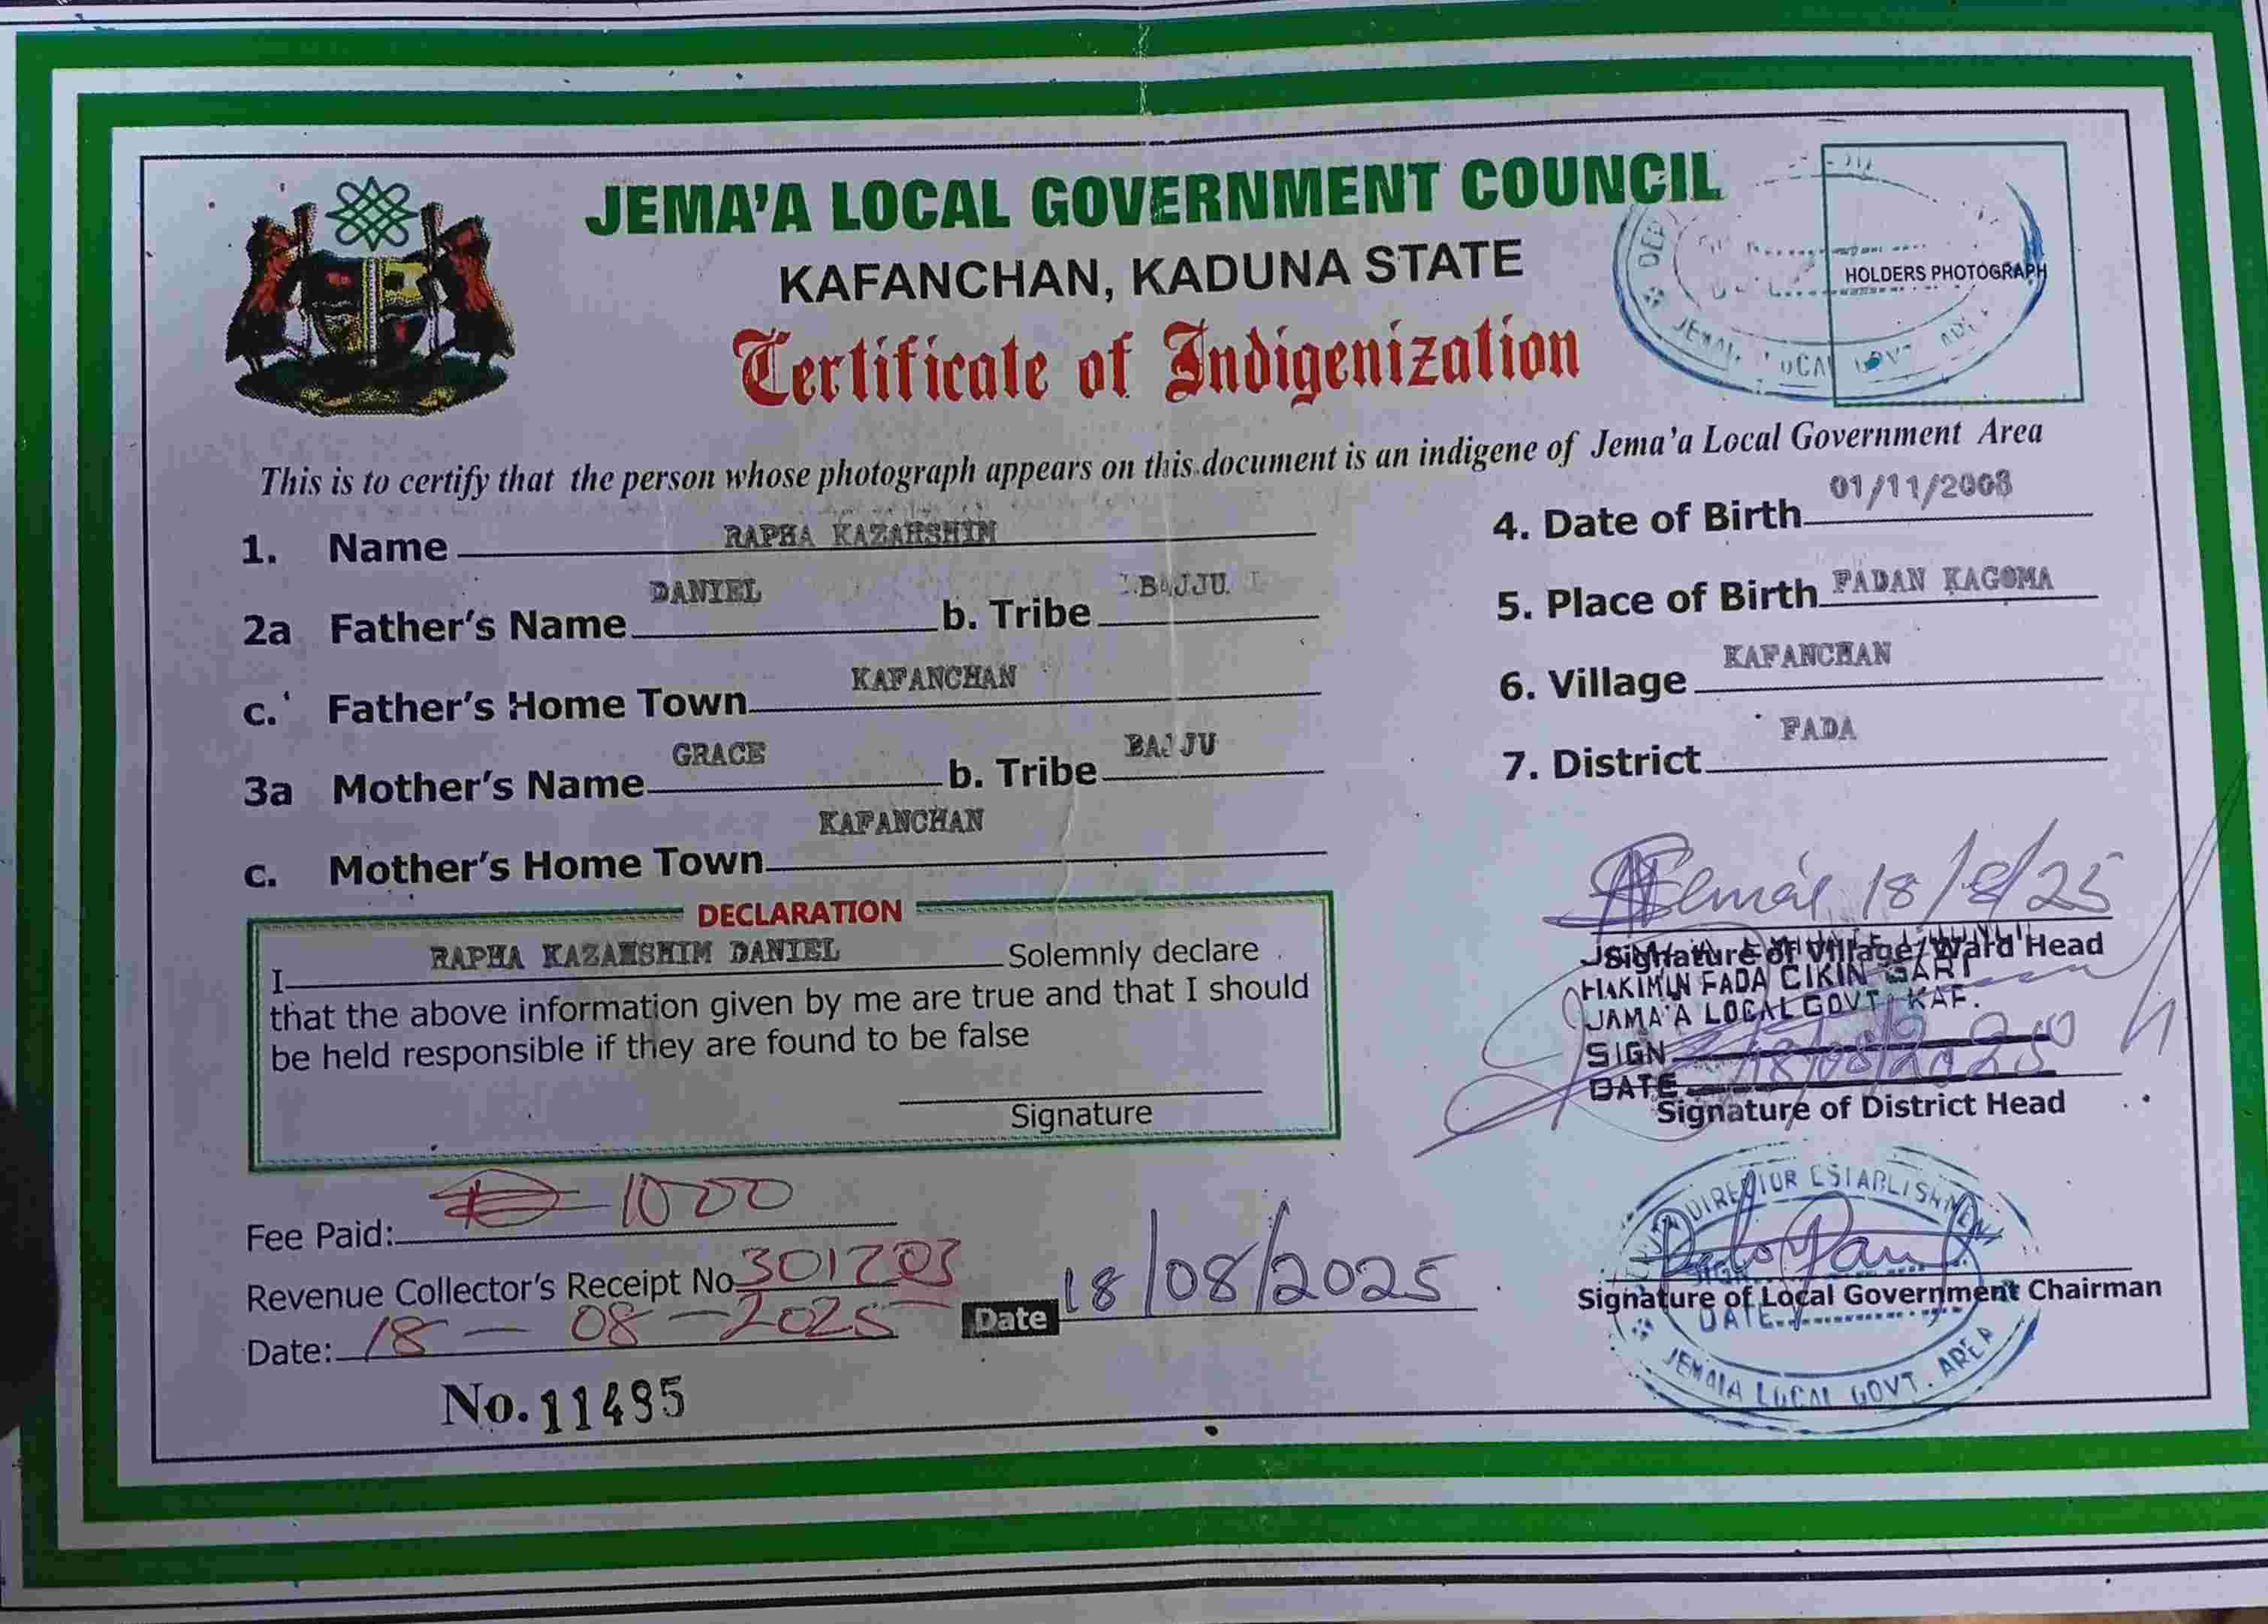 JEMA'A LOCAL GOVERNMENT COUNCIL
KAFANCHAN, KADUNA STATE
Certificate of Indigenization
HOLDERS PHOTOGRAPH
JEMA'A LOCAL GOVT. AREA
This is to certify that the person whose photograph appears on this document is an indigene of Jema'a Local Government Area
1. Name RAPHA KAZAHSHIM
2a Father's Name DANIEL b. Tribe BAJJU
c. Father's Home Town KAFANCHAN
3a Mother's Name GRACE b. Tribe BAJJU
c. Mother's Home Town KAFANCHAN
4. Date of Birth 01/11/2008
5. Place of Birth FADAN KAGOMA
6. Village KAFANCHAN
7. District FADA
DECLARATION
I RAPHA KAZAHSHIM DANIEL Solemnly declare
that the above information given by me are true and that I should
be held responsible if they are found to be false
Signature
18/8/25
Signature of Village/Ward Head
HAKIMIN FADA CIKIN GARI
JAMA'A LOCAL GOVT. KAF.
SIGN
DATE 18/08/2025
Signature of District Head
Fee Paid: ₦ 1000
Revenue Collector's Receipt No 301203
Date: 18-08-2025
Date 18/08/2025
DIRECTOR ESTABLISHMENT
SIGN
Signature of Local Government Chairman
DATE
JEMA'A LOCAL GOVT. AREA
No. 11495